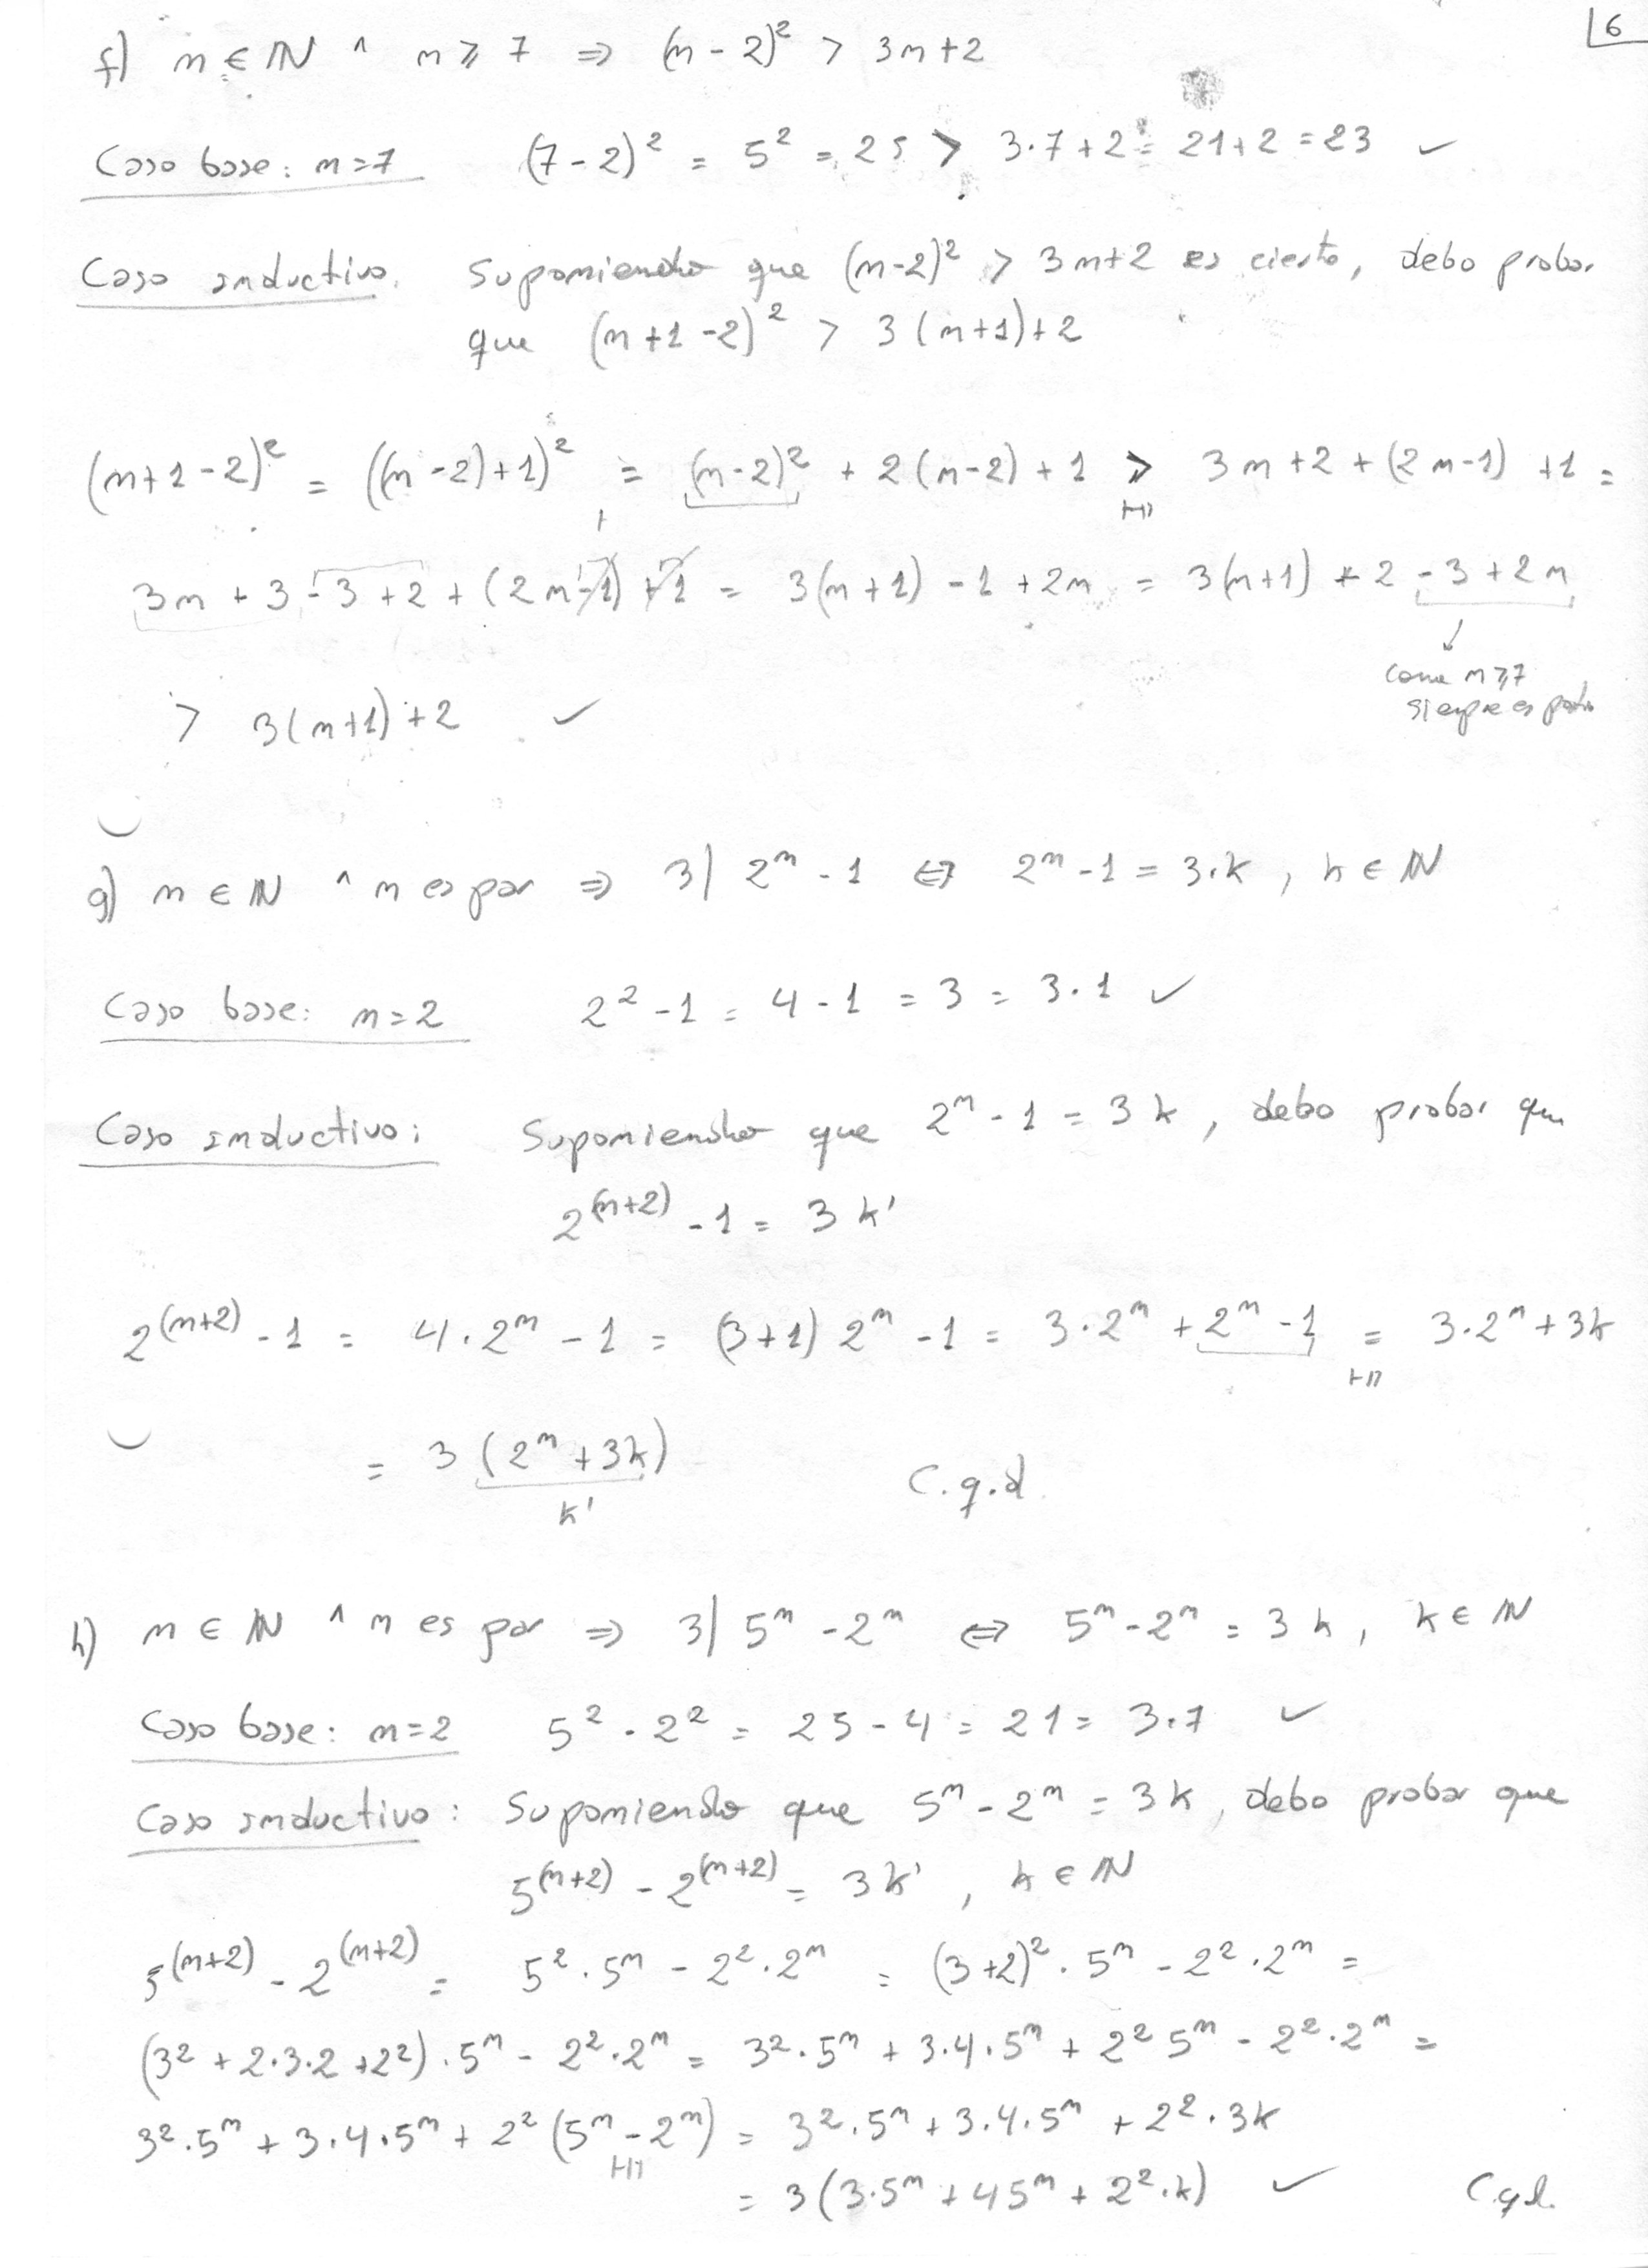 6
f) n ∈ ℕ ∧ n ≥ 7 ⇒ (n - 2)² > 3n+2
Caso base: n=7 (7-2)² = 5² = 25 > 3·7+2 = 21+2 = 23 ✓
Caso inductivo. Suponiendo que (n-2)² > 3n+2 es cierto, debo probar
que (n+1-2)² > 3(n+1)+2
(n+1-2)² = ((n-2)+1)² = (n-2)² + 2(n-2) + 1 > 3n+2 + (2n-1) + 1 =
HI
3n + 3 - 3 + 2 + (2n-1) + 1 = 3(n+1) - 1 + 2n = 3(n+1) + 2 - 3 + 2n
como n≥7
siempre es
> 3(n+1)+2 ✓
g) n ∈ ℕ ∧ n es par ⇒ 3| 2ⁿ - 1 ⇔ 2ⁿ - 1 = 3·k, k ∈ ℕ
Caso base: n=2 2² - 1 = 4 - 1 = 3 = 3·1 ✓
Caso inductivo: Suponiendo que 2ⁿ - 1 = 3k, debo probar que
2⁽ⁿ⁺²⁾ - 1 = 3k'
2⁽ⁿ⁺²⁾ - 1 = 4·2ⁿ - 1 = (3+1) 2ⁿ - 1 = 3·2ⁿ + 2ⁿ - 1 = 3·2ⁿ + 3k
HI
= 3 (2ⁿ + 3k) C.q.d.
k'
h) n ∈ ℕ ∧ n es par ⇒ 3| 5ⁿ - 2ⁿ ⇔ 5ⁿ - 2ⁿ = 3k, k ∈ ℕ
Caso base: n=2 5² - 2² = 25 - 4 = 21 = 3·7 ✓
Caso inductivo: Suponiendo que 5ⁿ - 2ⁿ = 3k, debo probar que
5⁽ⁿ⁺²⁾ - 2⁽ⁿ⁺²⁾ = 3k', k ∈ ℕ
5⁽ⁿ⁺²⁾ - 2⁽ⁿ⁺²⁾ = 5²·5ⁿ - 2²·2ⁿ = (3+2)²·5ⁿ - 2²·2ⁿ =
(3² + 2·3·2 + 2²)·5ⁿ - 2²·2ⁿ = 3²·5ⁿ + 3·4·5ⁿ + 2² 5ⁿ - 2²·2ⁿ =
3²·5ⁿ + 3·4·5ⁿ + 2² (5ⁿ - 2ⁿ) = 3²·5ⁿ + 3·4·5ⁿ + 2²·3k
HI
= 3(3·5ⁿ + 4 5ⁿ + 2²·k) ✓ C.q.d.